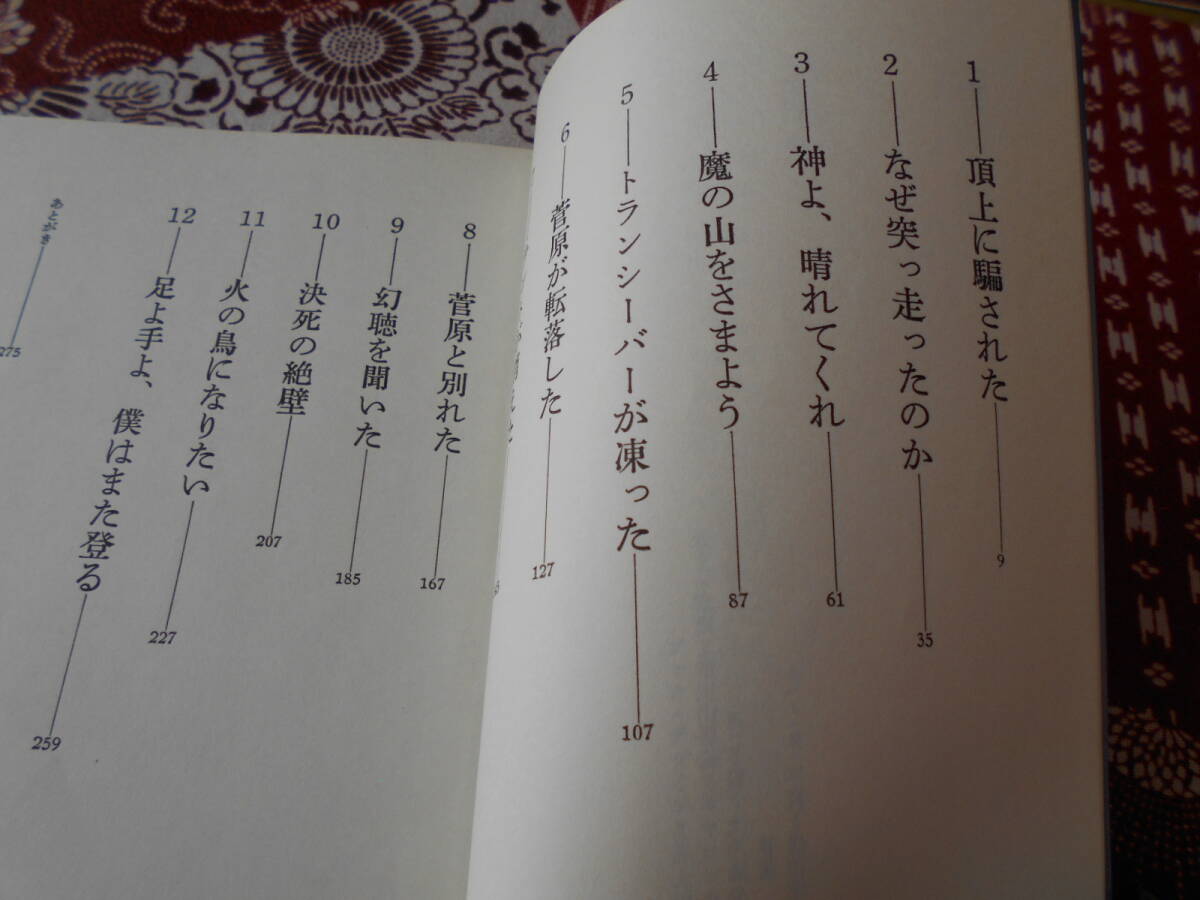 1―頂上に騙された―9
2―なぜ突っ走ったのか―35
3―神よ、晴れてくれ―61
4―魔の山をさまよう―87
5―トランシーバーが凍った―107
6―菅原が転落した―127
8―菅原と別れた―167
9―幻聴を聞いた―185
10―決死の絶壁―207
11―火の鳥になりたい―227
12―足よ手よ、僕はまた登る―259
あとがき―275